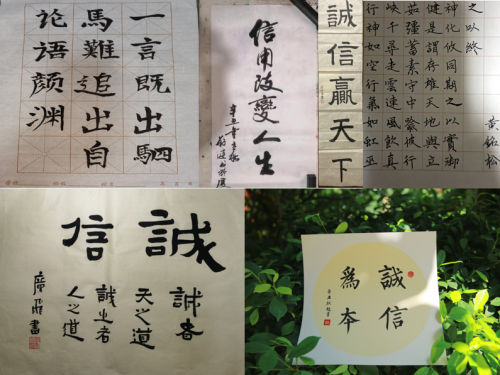 一言既出駟
馬難追出自
论语颜渊
信用改變人生
誠信贏天下
行神如空行氣如虹巫
峽千尋走雲連風飲真
茹彊蓄素守中喻彼行
健是謂存雄天地與立
神化攸同期之以實御
之以終
誠信
誠者
天之道
誠之者
人之道
誠信
為本